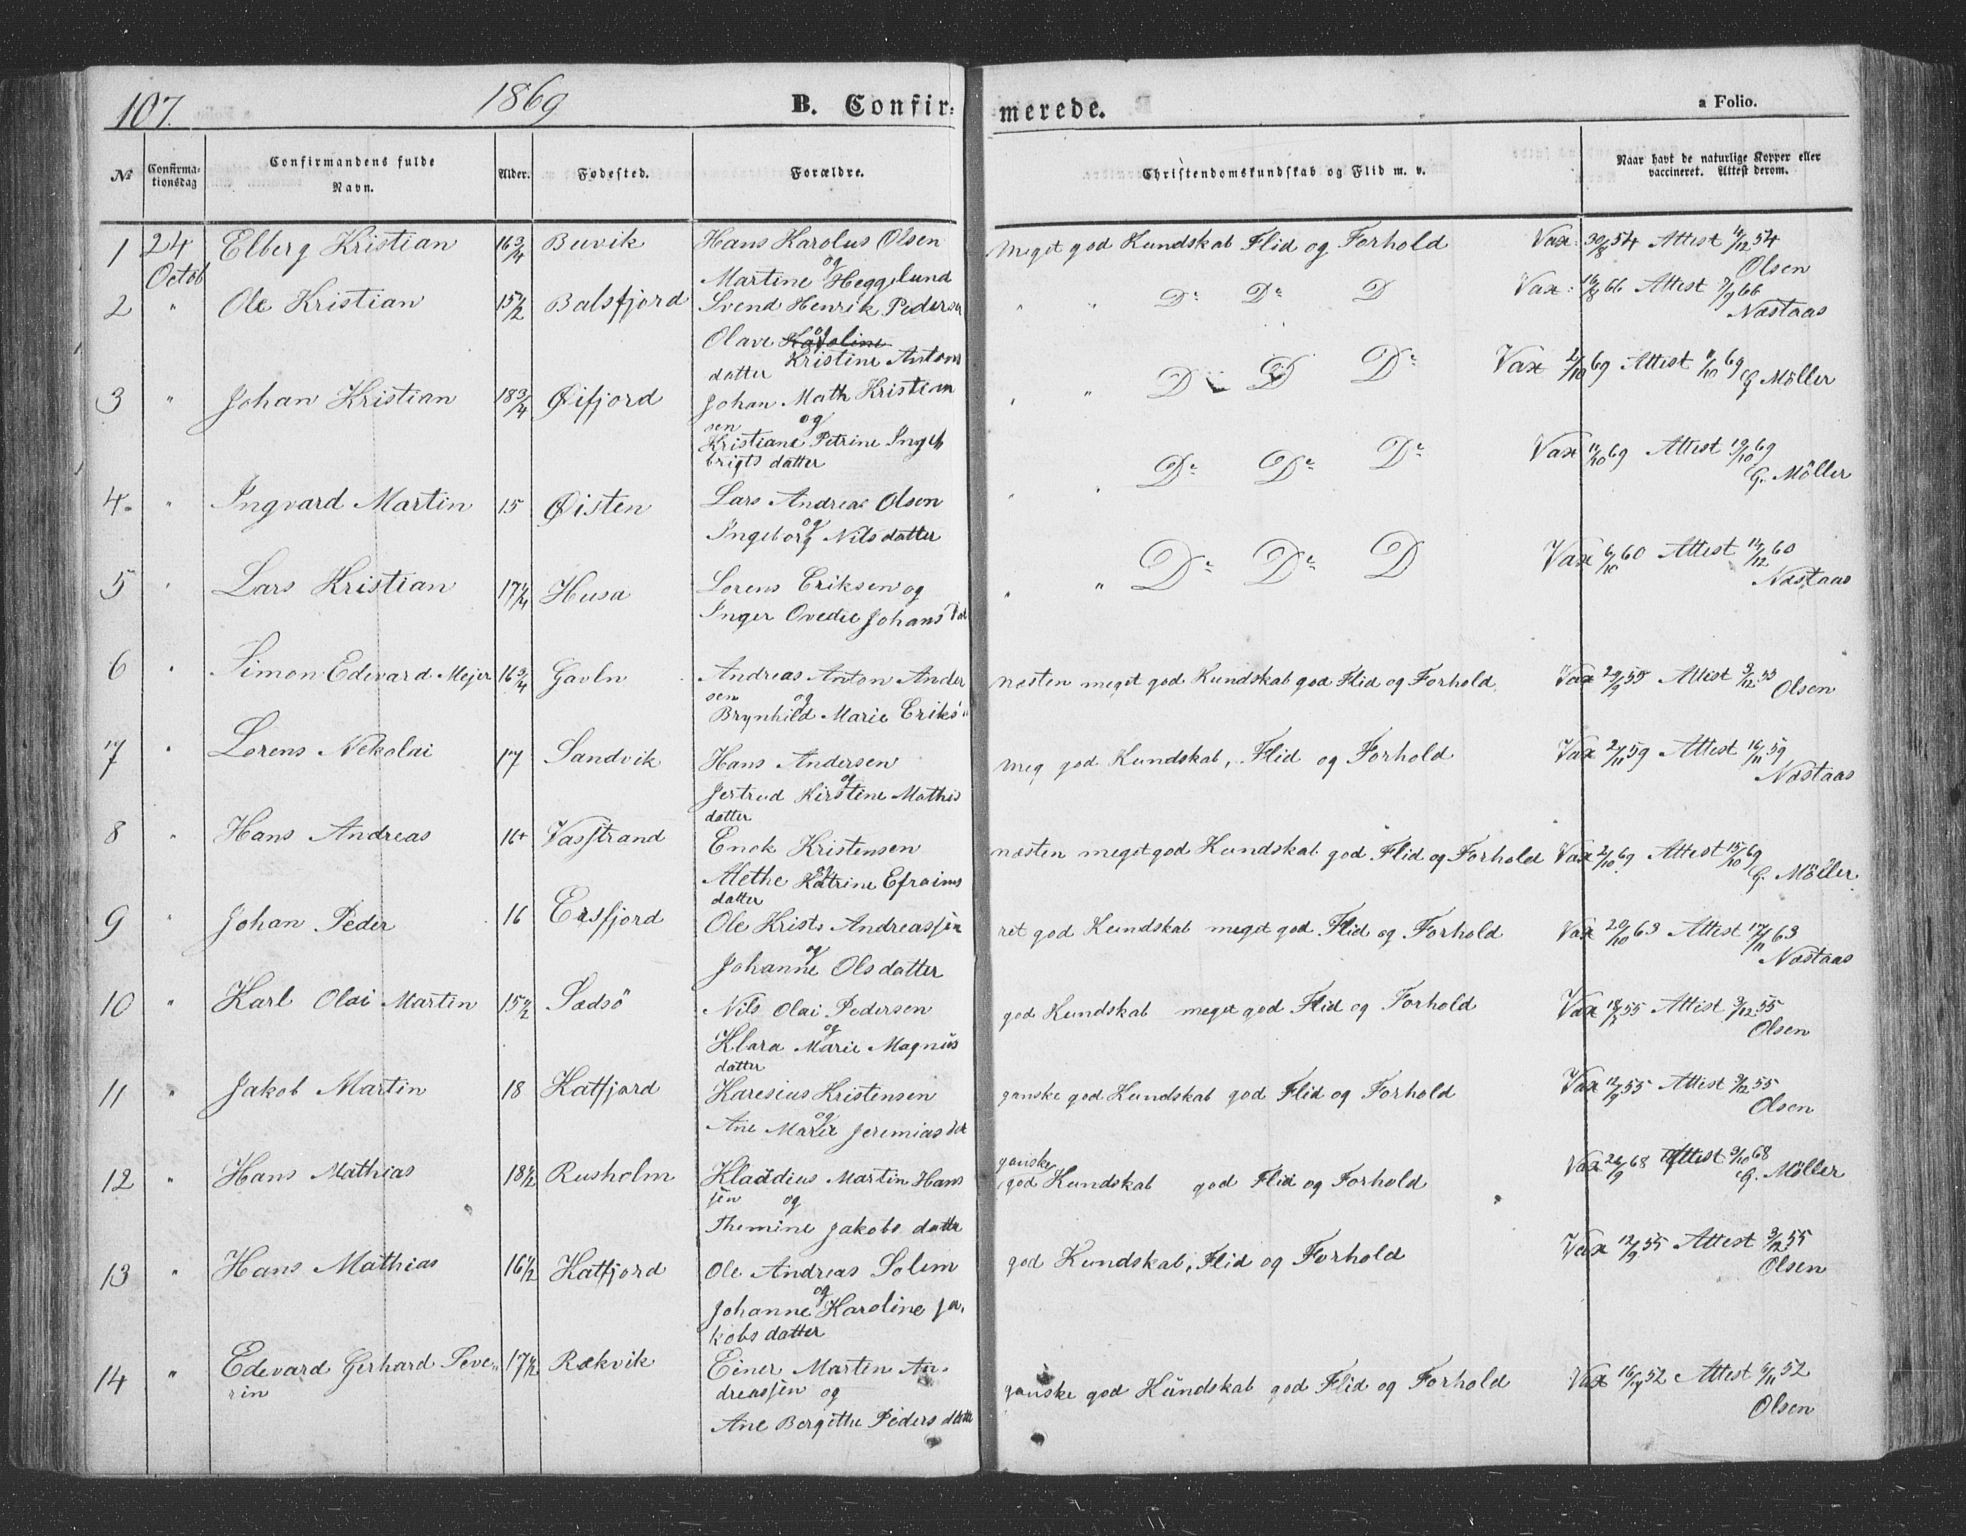 107. 1869 B. Confir: merede. a Folio.
№ Confirma-tionsdag Confirmandens fulde Navn. Alder. Fødested. Forældre. Christendomskundskab og Flid m. v. Naar havt de naturlige Kopper eller vaccineret. Attest derom.
1 24 Octob Elberg Kristian 16 3/4 Buvik Hans Karolus Olsen Meget god Kundskab Flid og Forhold Vax: 30/8 54 Attest 4/12 54
og
Martine Heggelund Olsen
2 " Ole Kristian 15 1/2 Balsfjord Svend Henrik Pedersen " " Do Do D Vax: 16/8 66 Attest 7/9 66
Olave Karoline og Næstaas
Kristine Antons
datter
3 " Johan Kristian 18 3/4 Øifjord Johan Math Kristian " " D D Do Vax 2/10 69 Attest 11/10 69
sen og G Möller
Kristiane Petrine Inge
brigts datter
4. " Ingvard Martin 15 Øisten Lars Andreas Olsen " " Do Do Do Vax 11/10 69 Attest 19/10 69
og G. Möller
Ingeborg Nilsdatter
5 " Lars Kristian 17 1/4 Husa Lorens Eriksen og " " Do Do D Vax 6/10 60 Attest 14/12 60
Inger Ovedie Johans Dat Næstaas
6 " Simon Edevard Mejer 16 3/4 Gavln Andreas Anton Ander næsten meget god Kundskab god Flid og Forhold Vax 29/9 55 Attest 3/12 55
sen og Olsen
Brynhild Marie Eriks"
7 " Lorens Nekolai 17 Sandvik Hans Andersen Meg god Kundskab, Flid og Forhold Vax 2/11 59 Attest 16/11 59
og Næstaas
Jertrud Kirstine Mathis
datter
8 " Hans Andreas 16+ Vasstrand Enok Kristensen næsten meget god Kundskab god Flid og Forhold Vax 2/10 69 Attest 15/10 69
og G. Möller
Methe Katrine Efraims
datter
9 " Johan Peder 16 Ersfjord Ole Krists Andreassen ret god Kundskab meget god Flid og Forhold Vax 20/10 63 Attest 17/11 63
og Næstaas
Johanne Olsdatter
10 " Karl Olai Martin 15 1/2 Sadsö Nils Olai Pedersen god Kundskab meget god Flid og Forhold Vax 55 Attest 3/12 55
og Olsen
Klara Marie Magnüs
datter
11 " Jakob Martin 18 Katfjord Karesius Kristensen ganske god Kundskab god Flid og Forhold Vax 12/9 55 Attest 3/12 55
og Olsen
Ane Marie Jeremias dtr
12 " Hans Mathias 18 1/2 Rusholm Kladdius Martin Hans ganske god Kundskab god Flid og Forhold Vax 26/9 68 Attest 9/10 68
sen og G. Möller
Themine Jakobs datter
13 " Hans Mathias 16 1/2 Katfjord Ole Andreas Solem god Kundskab, Flid og Forhold Vax 12/9 55 Attest 3/12 55
og Olsen
Johanne Karoline Ja.
kobs datter
14 " Edevard Gerhard Seve" 17 1/2 Rækvik Einer Martin An. ganske god Kundskab god Flid og Forhold Vax 52 Attest 6/11 52
rin dreassen og Olsen
Ane Bergithe Peders datter